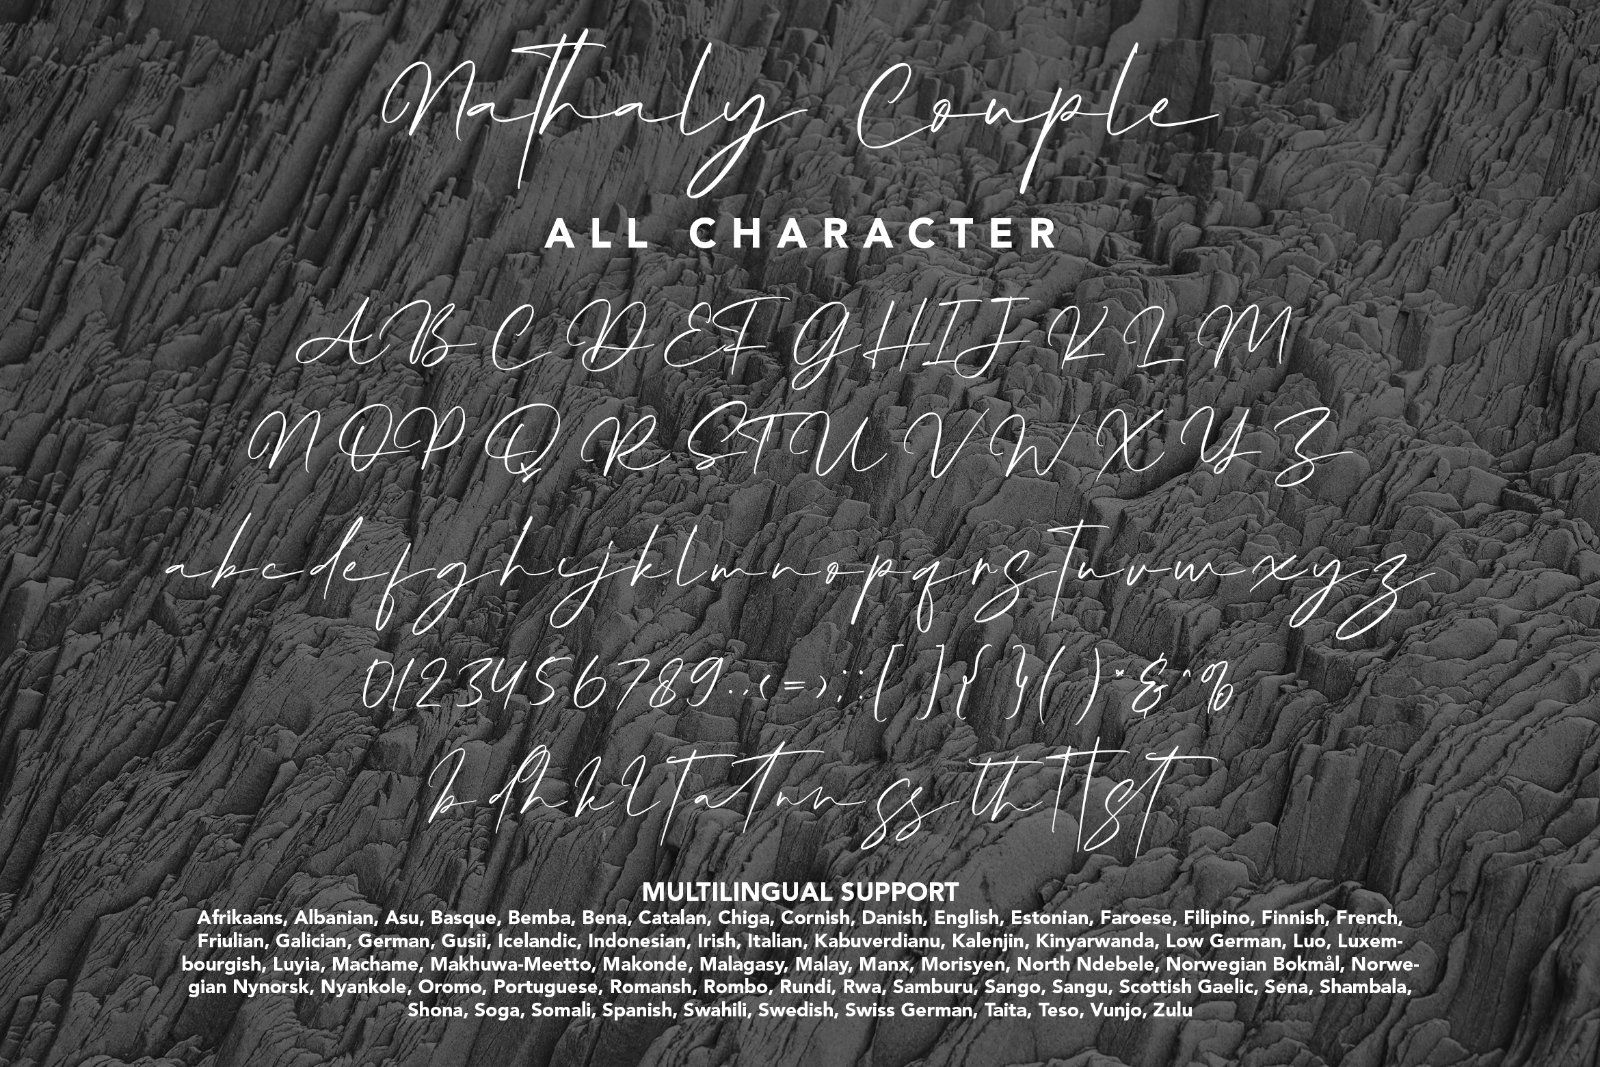 Nathaly Couple
ALL CHARACTER
A B C D E F G H I J K L M
N O P Q R S T U V W X Y Z
a b c d e f g h i j k l m n o p q r s t u v w x y z
0 1 2 3 4 5 6 7 8 9 . , ( = ) ; : [ ] { } ( ) * & ^ %
MULTILINGUAL SUPPORT
Afrikaans, Albanian, Asu, Basque, Bemba, Bena, Catalan, Chiga, Cornish, Danish, English, Estonian, Faroese, Filipino, Finnish, French,
Friulian, Galician, German, Gusii, Icelandic, Indonesian, Irish, Italian, Kabuverdianu, Kalenjin, Kinyarwanda, Low German, Luo, Luxem-
bourgish, Luyia, Machame, Makhuwa-Meetto, Makonde, Malagasy, Malay, Manx, Morisyen, North Ndebele, Norwegian Bokmål, Norwe-
gian Nynorsk, Nyankole, Oromo, Portuguese, Romansh, Rombo, Rundi, Rwa, Samburu, Sango, Sangu, Scottish Gaelic, Sena, Shambala,
Shona, Soga, Somali, Spanish, Swahili, Swedish, Swiss German, Taita, Teso, Vunjo, Zulu